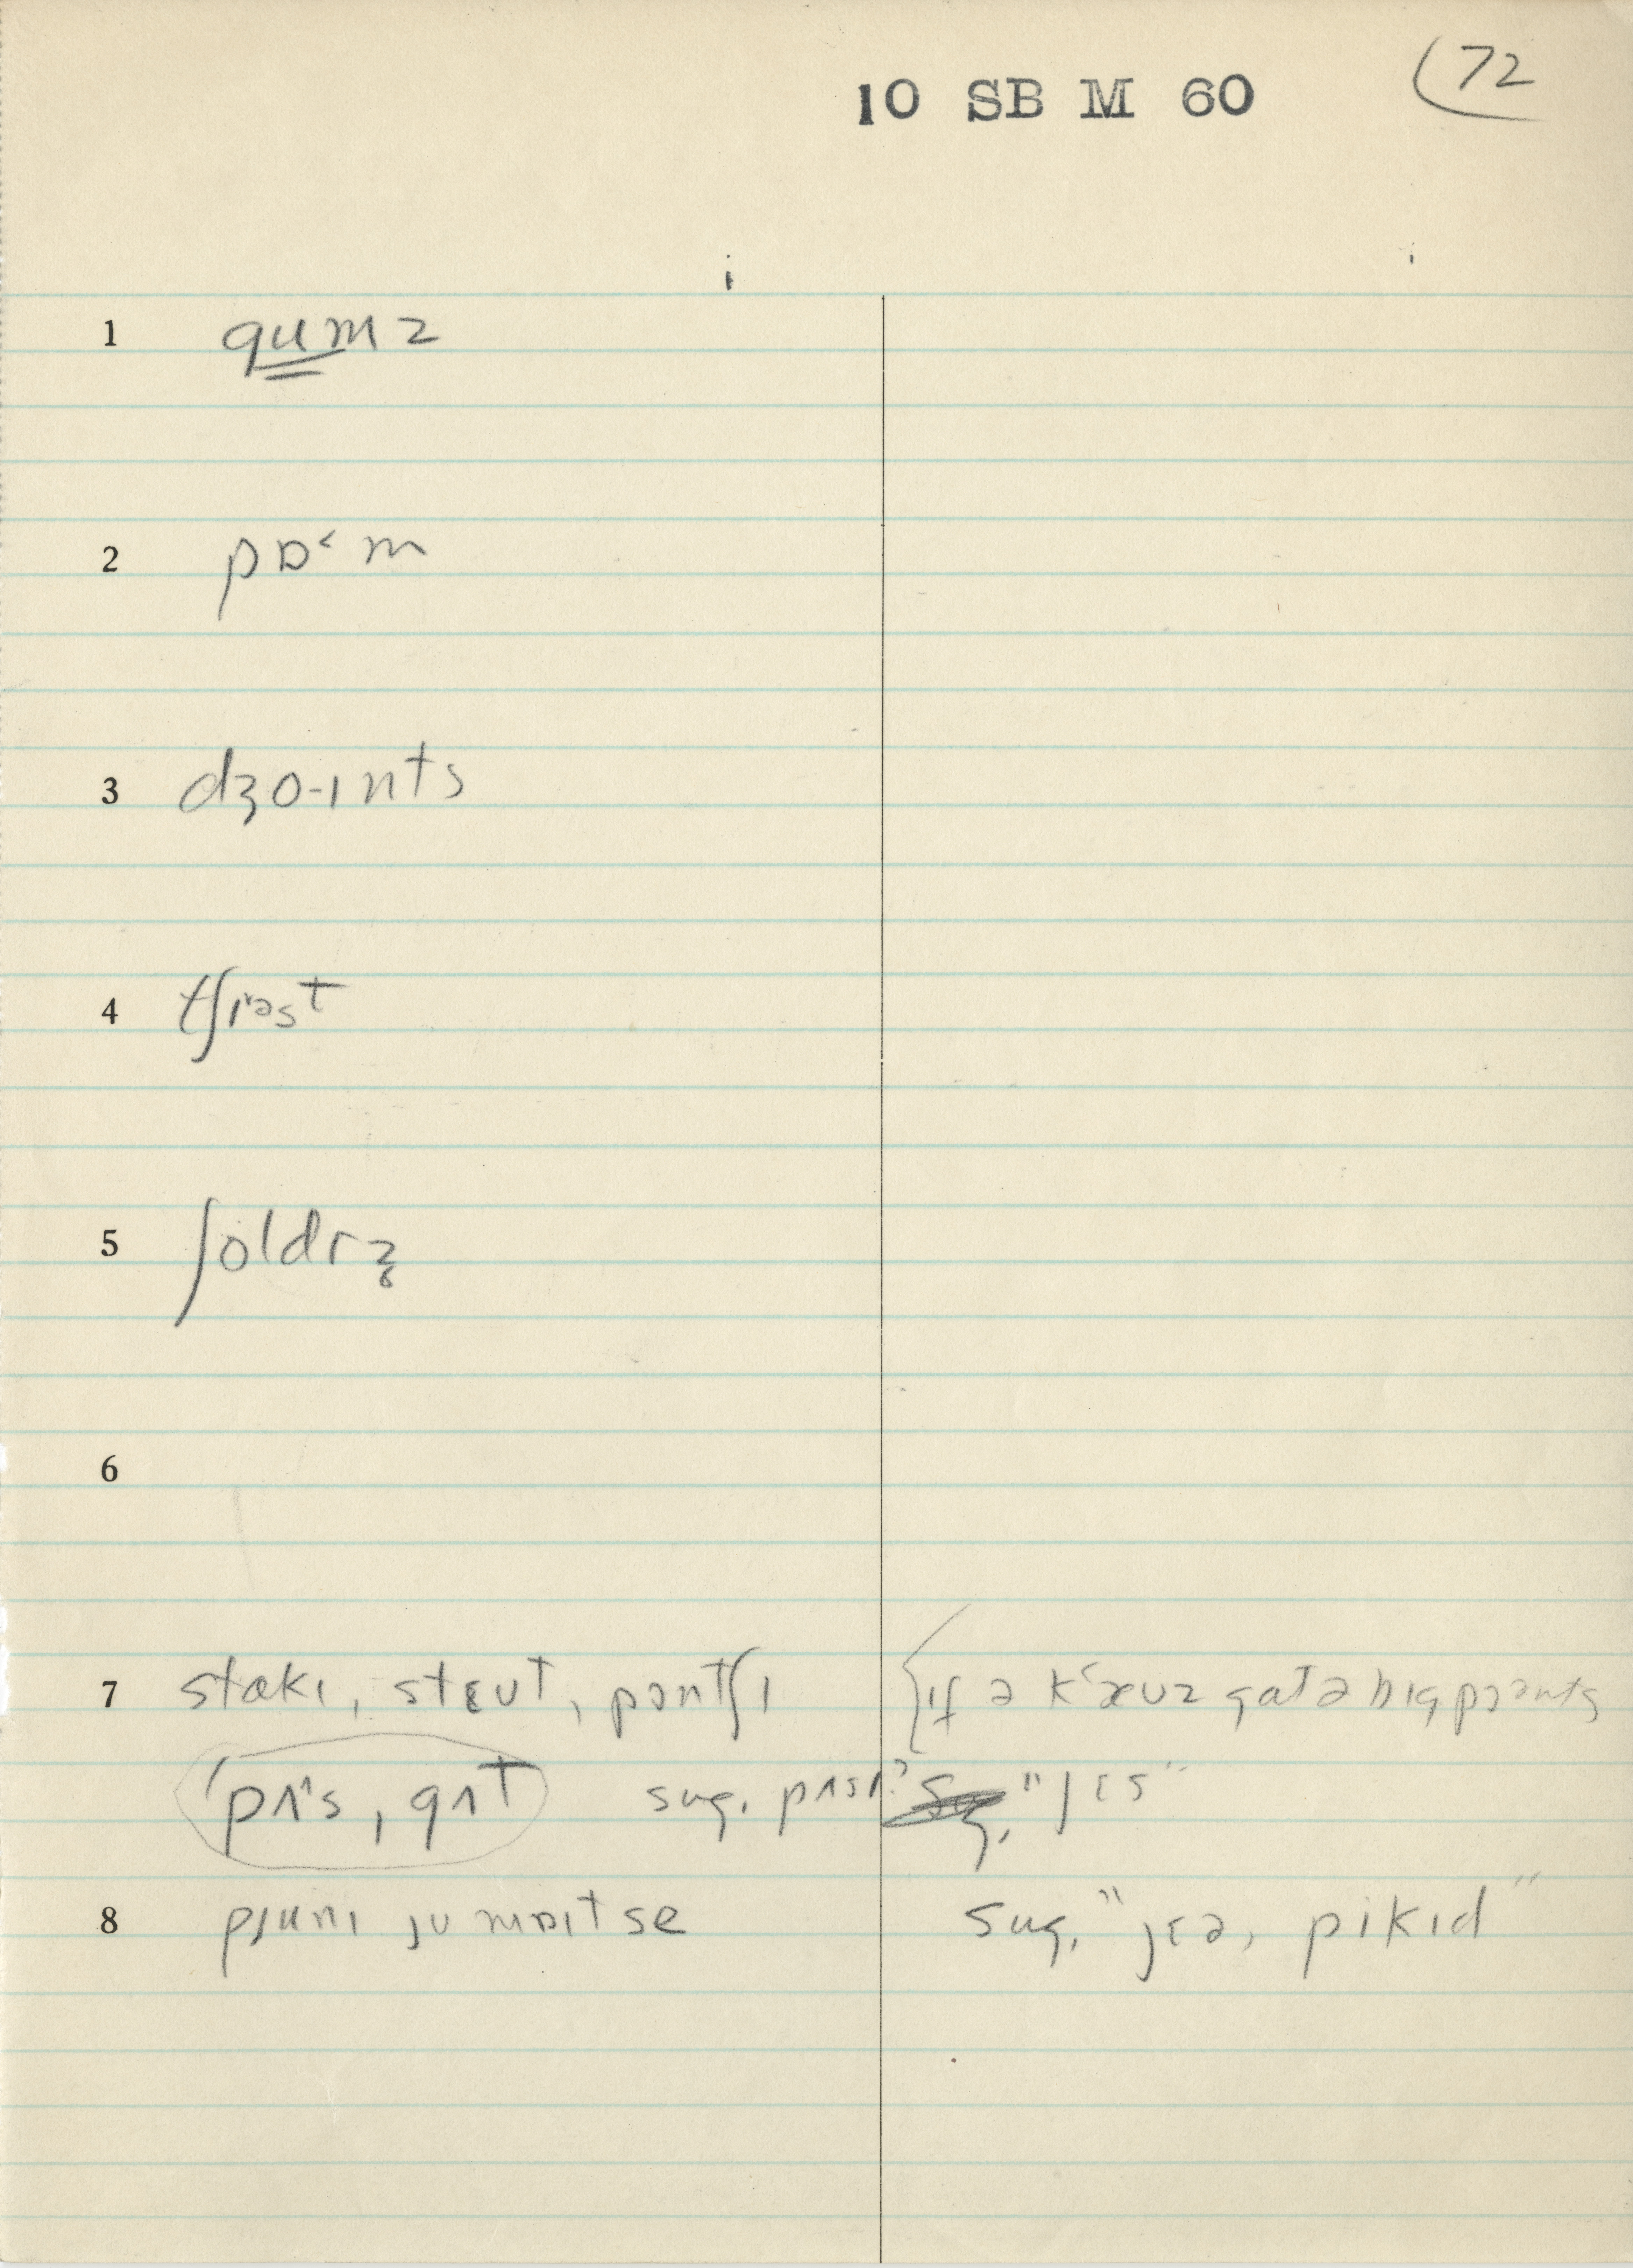 10 SB M 60 72
1 gumz
2 pɒ˂m
3 dʒo-ɪnts
4 tʃɪəst
5 ʃoldrz̨
6
7 stɑkɪ, stɛʊt, pɔntʃɪ {ɪf ə kæʊz gɑt ə bɪg pɔənts
pʌ˄s, gʌt sug. pʌsɪ? "jɛs"
8 pjunɪ jʊ mɒɪt se sug. "jɛə, pikɪd"